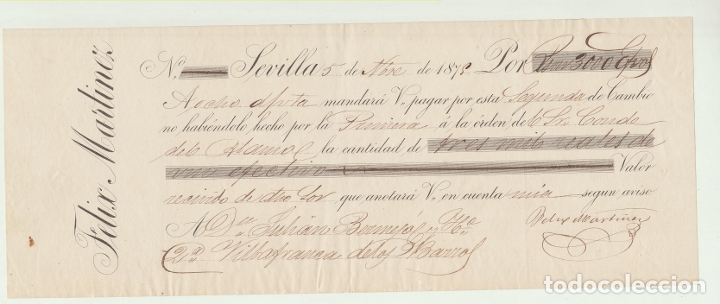 Felix Martinez
No. Sevilla 5 de Nbre de 1875. Por Rvon 3000 Efvos
A ocho d/vista mandará V. pagar por esta Segunda de Cambio
no habiéndolo hecho por la Primera á la órden del Sr Conde
del Alamo la cantidad de tres mil reales de
von efectivo Valor
recivido de dho Sor que anotará V. en cuenta mia segun aviso
A Dn Julián Bermejo y Ca Felix Martinez
2a Villafranca de los Barros
todocoleccion.net